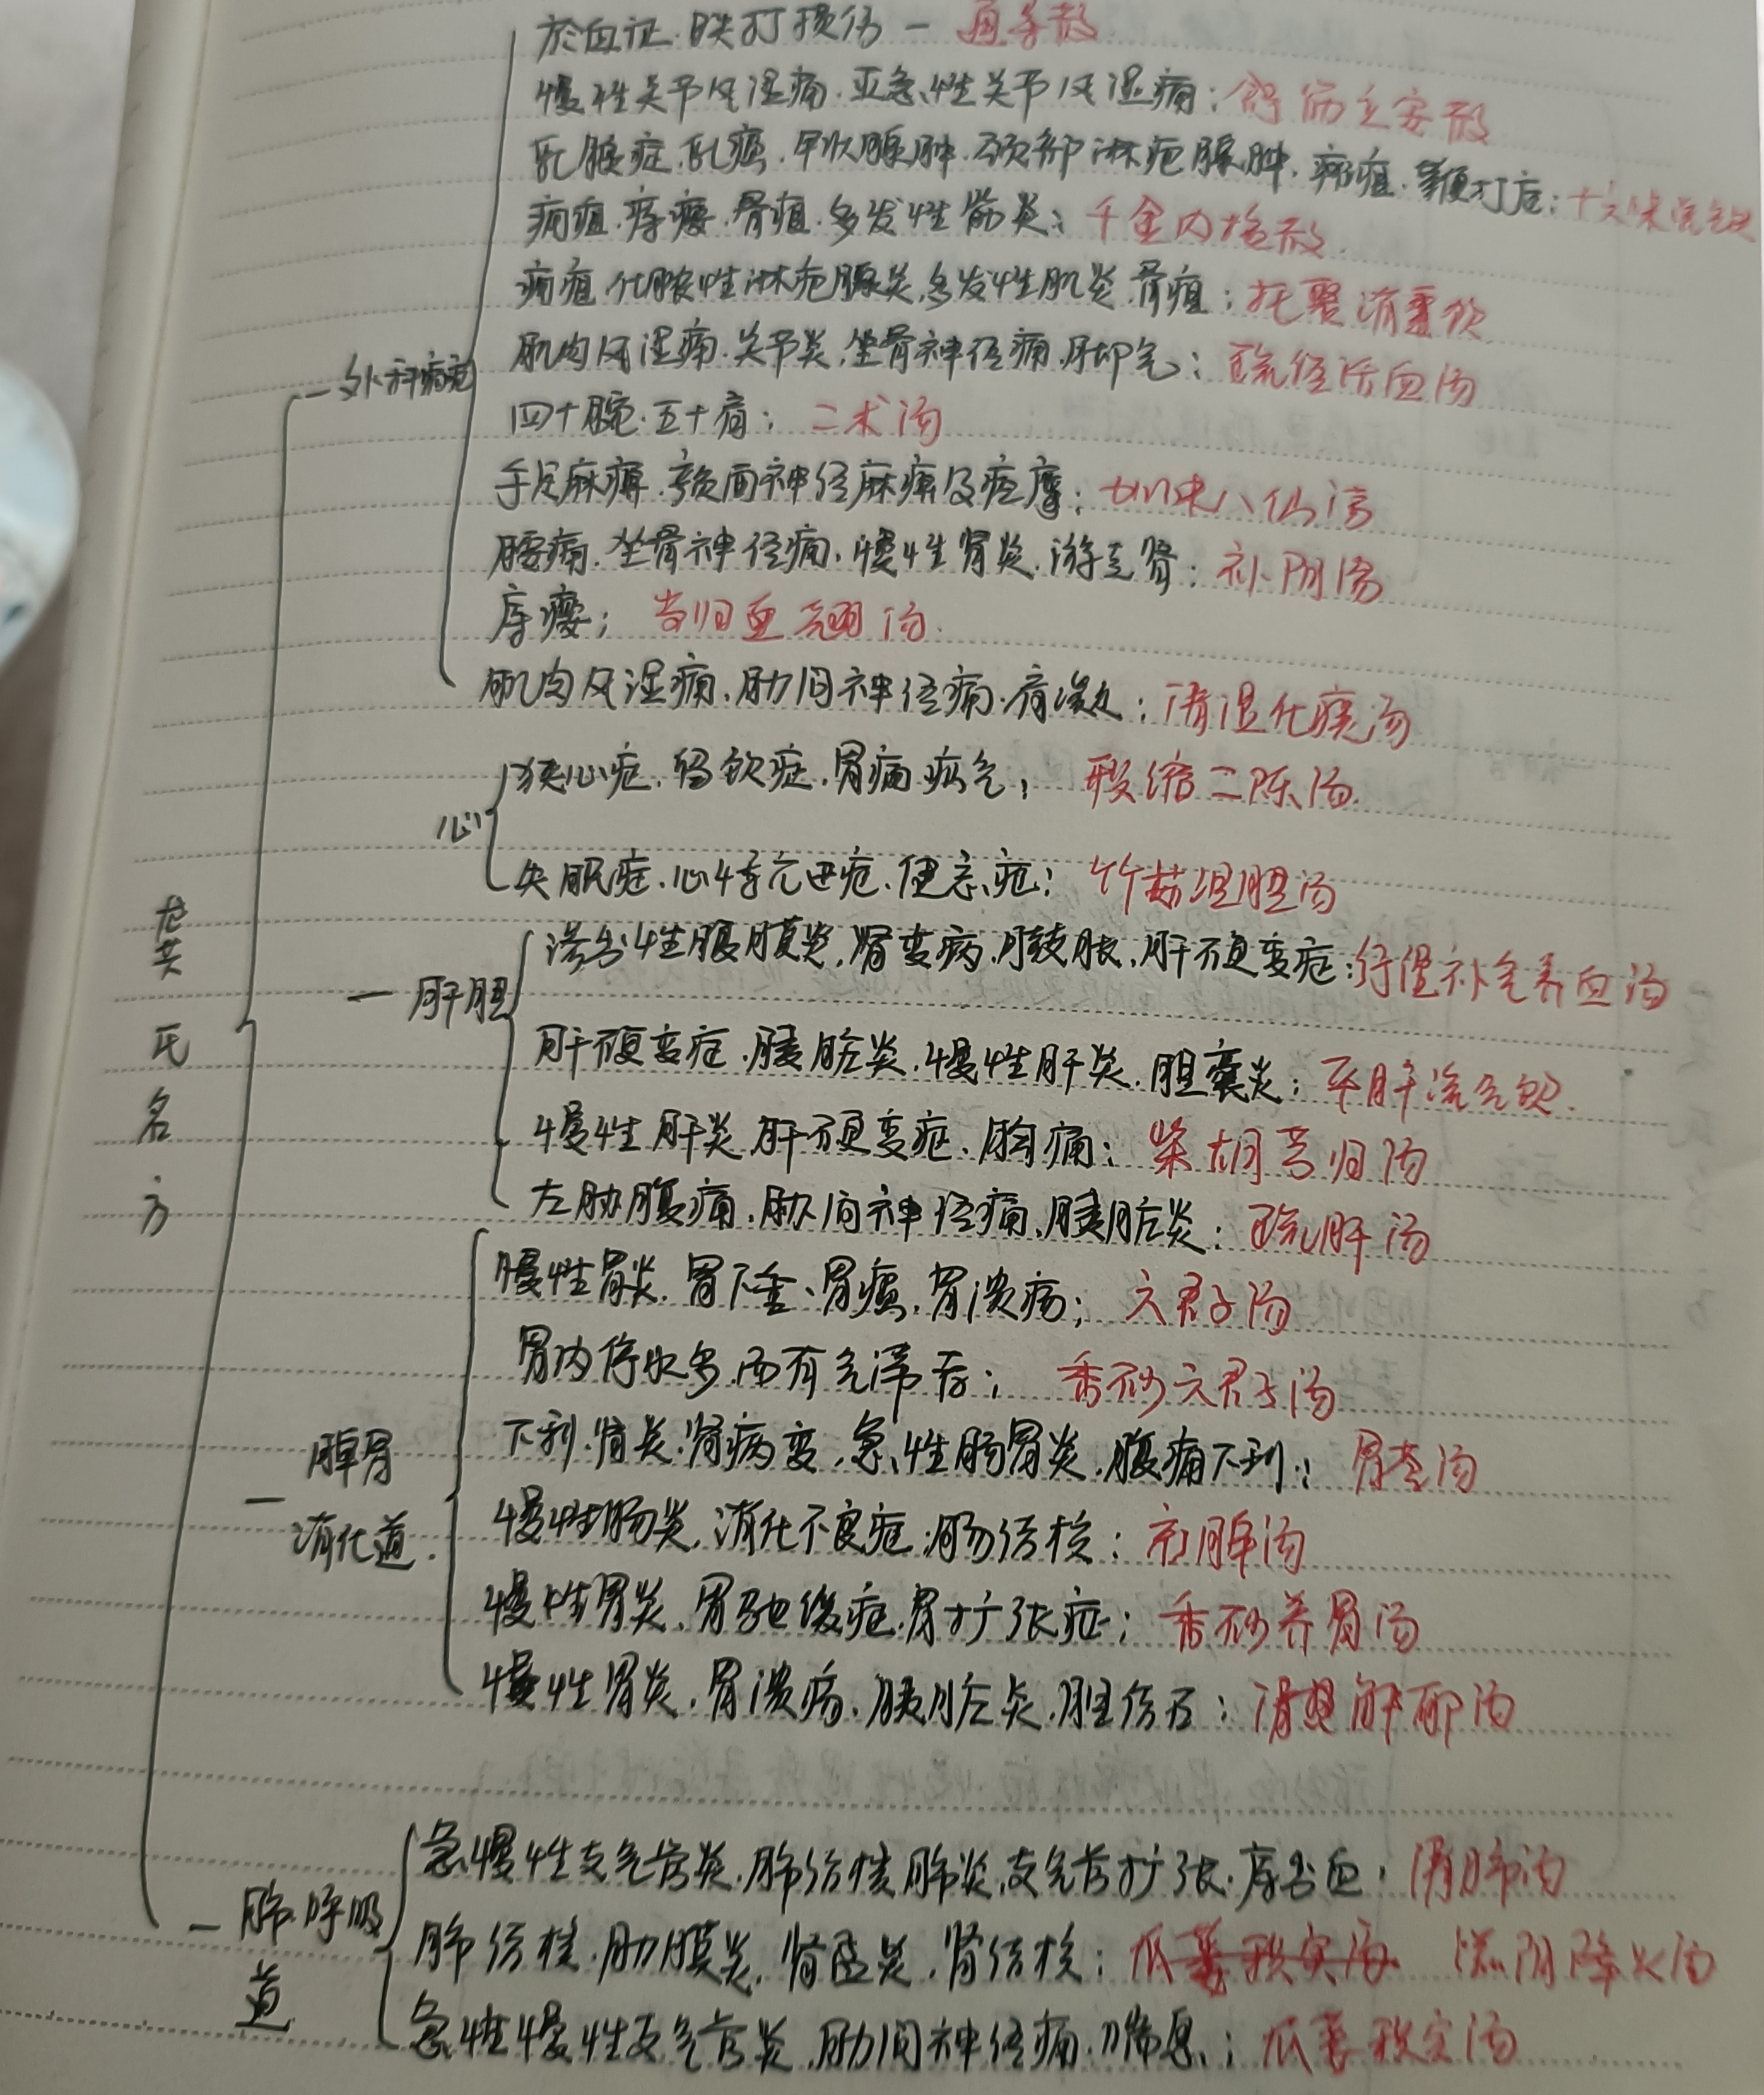 瘀血证.跌打损伤 —
慢性关节风湿痛.亚急性关节风湿痛：舒筋立安散
乳腺症.乳癌.甲状腺肿.颈部淋疤腺肿.瘰疽.：十六味流气饮
痈疽.痔瘘.骨疽.多发性筋炎：千金内托散.
痈疽.化脓性淋疤腺炎.多发性肌炎.骨疽：托里消毒饮
一外科病症
肌肉风湿痛.关节炎.坐骨神经痛.脚气：疏经活血汤
四十腕.五十肩：二术汤
手足麻痹.颜面神经麻痹及痉挛：加味八仙汤
腰痛.坐骨神经痛.慢性肾炎.游走肾：补阴汤
痔瘘：当归连翘汤.
肌肉风湿痛.肋间神经痛.肩凝：清湿化痰汤
心
狭心症.留饮症.胃痛疝气：联缩二陈汤.
失眠症.心悸亢进症.健忘症：竹茹温胆汤
龙共氏名方
一肝胆
渗出性腹膜炎.肾变病.鼓胀.肝硬变症：分消补气养血汤
肝硬变症.胰脏炎.慢性肝炎.胆囊炎：平肝流气饮.
慢性肝炎.肝硬变症.胸痛：柴胡芎归汤
左胁腹痛.肋间神经痛.胰脏炎：疏肝汤
慢性胃炎.胃下垂、胃癌.胃溃疡；六君子汤
胃内停水多而有气滞者；香砂六君子汤
一脾胃
消化道.
下利.肾炎.肾病变.急性肠胃炎.腹痛下利：胃苓汤
慢性肠炎.消化不良症.肠结核：启脾汤
慢性胃炎.胃弛缓症.胃扩张症；香砂养胃汤
慢性胃炎.胃溃疡.胰脏炎.胆结石：清热解郁汤
一肺.呼吸
道
急慢性支气管炎.肺结核肺炎.支气管扩张.痔出血：清肺汤
肺结核.肋膜炎.肾盂炎.肾结核：滋阴降火汤
急性慢性支气管炎.肋间神经痛.喘息：瓜蒌枳实汤